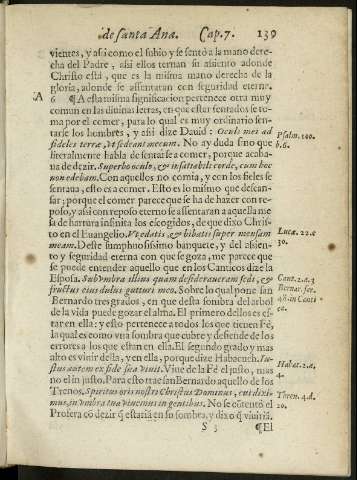 de santa Ana. Cap. 7. 139
vientes, y asi como el subio y se sentò a la mano dere-
cha del Padre, asi ellos ternan su asiento adonde
Christo està, que es la misma mano derecha de la
gloria, adonde se assentaran con seguridad eterna.
A 6 ¶ A esta misma significacion pertenece otra muy
comun en las diuinas letras, en que estar sentados se to-
ma por el comer, para lo qual es muy ordinario sen-
tarse los hombres, y asi dize Dauid: Oculi mei ad
fideles terræ, vt sedeant mecum. No ay duda sino que
literalmente habla de sentarse a comer, porque acaba-
ua de dezir. Superbo oculo, & insatiabili corde, cum hoc
non edebam. Con aquellos no comia, y con los fieles se
sentaua, esto es a comer. Esto es lo mismo que descan-
sar; porque el comer parece que se ha de hazer con re-
poso, y asi con reposo eterno se assentaran a aquella me
sa de hartura infinita los escogidos, de que dixo Chris-
to en el Euangelio. Vt edatis, & bibatis super mensam
meam. Deste sumptuosissimo banquete, y del asien-
to y seguridad eterna con que se goza, me parece que
se puede entender aquello que en los Canticos dize la
Esposa. Sub vmbra illius quam desideraueram sedi, &
fructus eius dulcis gutturi meo. Sobre lo qual pone san
Bernardo tres grados, en que desta sombra del arbol
de la vida puede gozar el alma. El primero dellos es es-
tar en ella: y esto pertenece a todos los que tienen Fè,
la qual es como vna sombra que cubre y defiende de los
errores a los que estan en ella. El segundo grado y mas
alto es viuir desta, y en ella, porque dize Habacuch. Iu-
stus autem ex fide sua viuit. Viue de la Fè el justo, mas
no el injusto. Para esto trae san Bernardo aquello de los
Trenos. Spiritus oris nostri Christus Dominus, cui dixi-
mus, in vmbra tua viuemus in gentibus. No se cōtentò el
Profeta cō dezir q̃ estaria en su sombra, y dixo q̃ viuiria
S 3 ¶ El
Psalm. 100.
b. 6.
Lucæ. 22. c
30.
Cant. 2. a. 3
Bernar. ser.
48. in Canti
ca.
Habac. 2. a.
4.
Thren. 4. d.
20.